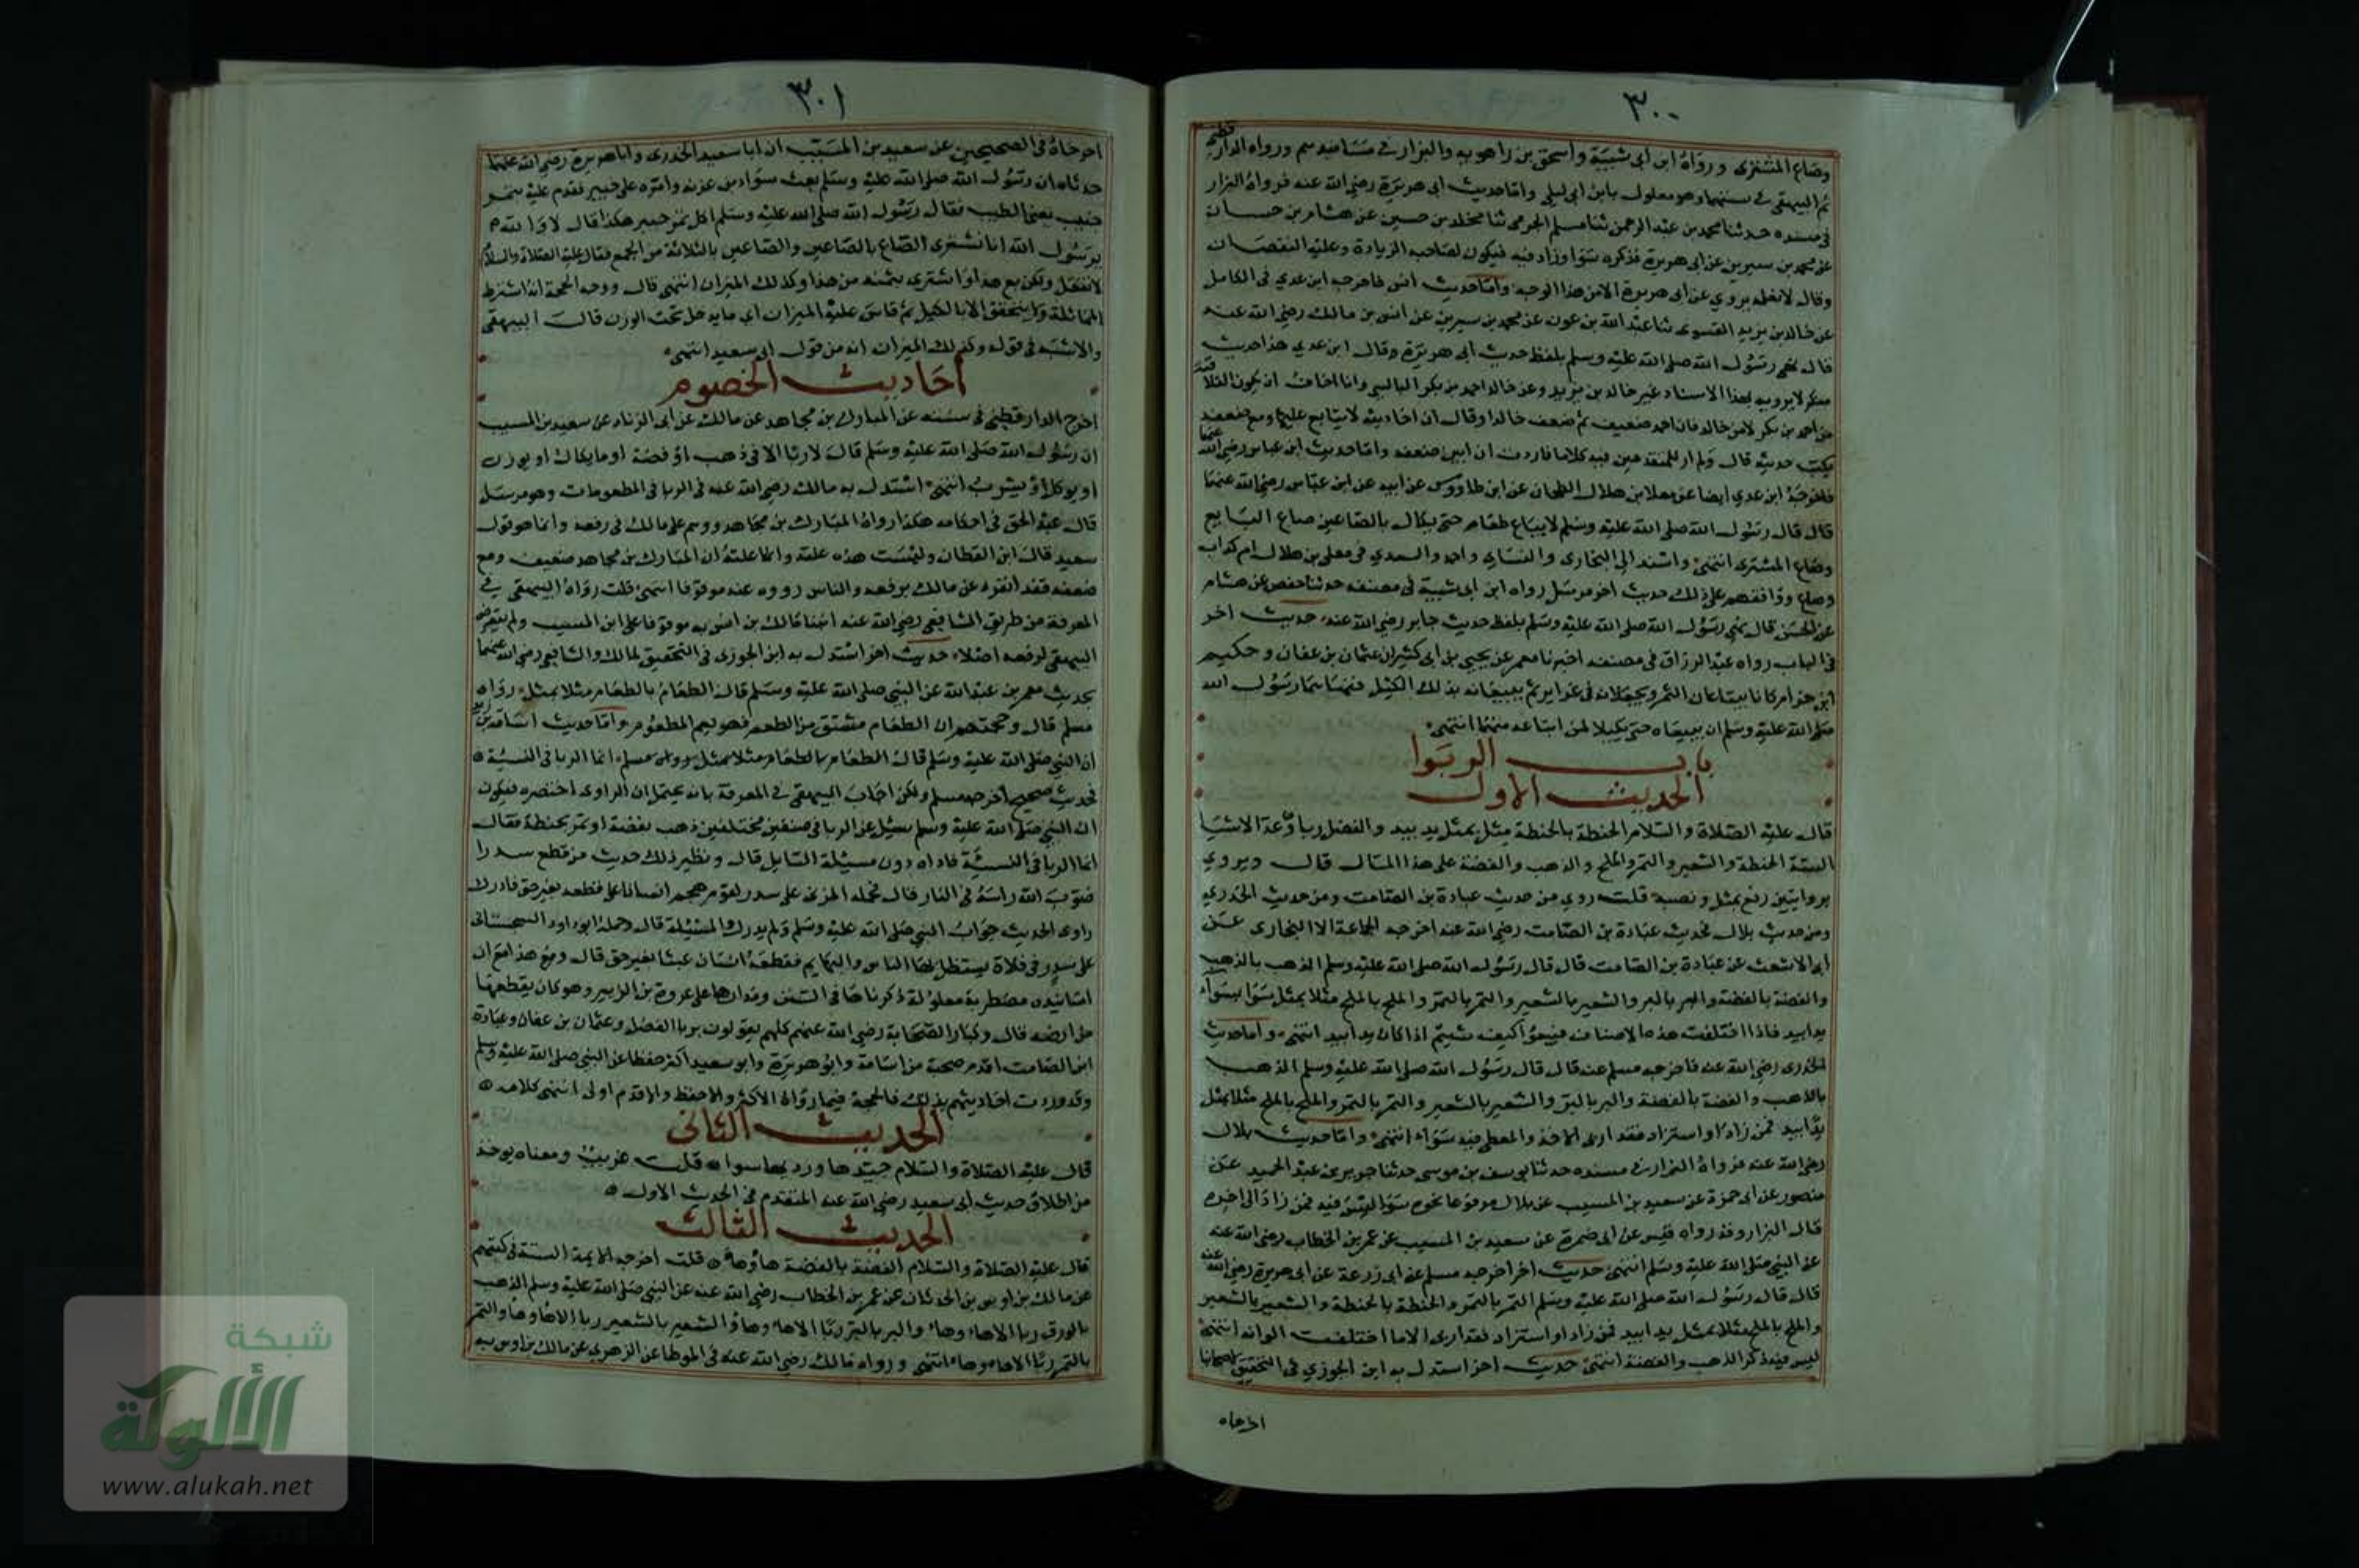 ٣٠٠
وصاع المشترى ورواه ابن ابى شيبة واسحق بن راهويه والبزار فى مسانيدهم ورواه الدارقطنى
ثم البيهقى فى سننهما وهو معلول بابن ابى ليلى واما حديث ابى هريرة رضى الله عنه فرواه البزار
فى مسنده حدثنا محمد بن عبد الرحمن ثنا مسلم الجرمى ثنا مخلد بن حسين عن هشام بن حسان
عن محمد بن سيرين عن ابى هريرة فذكره سوا وزاد فيه فيكون لصاحبه الزيادة وعليه النقصان
وقال لا نعلمه يروي عن ابى هريرة الا من هذا الوجه واما حديث انس فاخرجه ابن عدي فى الكامل
عن خالد بن يزيد القسرى ثنا عبد الله بن عون عن محمد بن سيرين عن انس بن مالك رضى الله عنه
قال نهى رسول الله صلى الله عليه وسلم بلفظ حديث ابى هريرة وقال ابن عدي هذا حديث
منكر لا يرويه بهذا الاسناد غير خالد بن يزيد وعن خالد احمد بن بكر البالسى وانا اخاف ان يكون البلا فيه
من احمد بن بكر لا من خالد فان احمد ضعيف ثم ضعف خالدا وقال ان احاديثه لا يتابع عليها ومع ضعفه
يكتب حديثه قال ولم ار للمتقدمين فيه كلاما فاردت ان ابين ضعفه واما حديث ابن عباس رضى الله عنهما
فاخرجه ابن عدي ايضا عن معلا بن هلال الطحان عن ابن طاووس عن ابيه عن ابن عباس رضى الله عنهما
قال قال رسول الله صلى الله عليه وسلم لا يباع طعام حتى يكال بالصاعين صاع البايع
وصاع المشترى انتهى واسند الى البخارى والنساى واحمد والسعدي فى معلى بن هلال ام كذاب
وضاع ووافقهم على ذلك حديث اخر مرسل رواه ابن ابى شيبة فى مصنفه حدثنا حفص عن هشام
عن الحسن قال نهى رسول الله صلى الله عليه وسلم بلفظ حديث جابر رضى الله عنه حديث اخر
فى الباب رواه عبد الرزاق فى مصنفه اخبرنا معمر عن يحيى بن ابى كثير ان عثمان بن عفان وحكيم
ابن حزام كانا يبتاعان التمر ويجعلانه فى غراير ثم يبيعانه بذلك الكيل فنهاهما رسول الله
صلى الله عليه وسلم ان يبيعاه حتى يكيلا لمن ابتاعه منهما انتهى
باب الربوا
الحديث الاول
قال عليه الصلاة والسلام الحنطة بالحنطة مثل بمثل يد بيد والفضل ربا وعد الاشيا
الستة الحنطة والشعير والتمر والملح والذهب والفضة على هذا المثال قال ويروي
بروايتين رفع بمثل ونصبه قلت روي من حديث عبادة بن الصامت ومن حديث الخدري
ومن حديث بلال فحديث عبادة بن الصامت رضى الله عنه اخرجه الجماعة الا البخارى عن
ابى الاشعث عن عبادة بن الصامت قال قال رسول الله صلى الله عليه وسلم الذهب بالذهب
والفضة بالفضة والبر بالبر والشعير بالشعير والتمر بالتمر والملح بالملح مثلا بمثل سوا بسواء
يدا بيد فاذا اختلفت هذه الاصناف فبيعوا كيف شيتم اذا كان يدا بيد انتهى واما حديث
الخدرى رضى الله عنه فاخرجه مسلم عنه قال قال رسول الله صلى الله عليه وسلم الذهب
بالذهب والفضة بالفضة والبر بالبر والشعير بالشعير والتمر بالتمر والملح بالملح مثلا بمثل
يدا بيد فمن زاد او استزاد فقد اربى الاخذ والمعطى فيه سواء انتهى واما حديث بلال
رضى الله عنه فرواه البزار فى مسنده حدثنا يوسف بن موسى حدثنا جرير بن عبد الحميد عن
منصور عن ابى حمزة عن سعيد بن المسيب عن بلال مرفوعا نحوه سوا ليس فيه فمن زاد الى اخره
قال البزار وقد رواه قيس عن ابى حمزة عن سعيد بن المسيب عن عمر بن الخطاب رضى الله عنه
عن النبى صلى الله عليه وسلم انتهى حديث اخر اخرجه مسلم عن ابى زرعة عن ابى هريرة رضى الله عنه
قال قال رسول الله صلى الله عليه وسلم التمر بالتمر والحنطة بالحنطة والشعير بالشعير
والملح بالملح مثلا بمثل يدا بيد فمن زاد او استزاد فقد اربى الا ما اختلفت الوانه انتهى
ليس فيه ذكر الذهب والفضة انتهى حديث اخر استدل به ابن الجوزي فى التحقيق لاصحابنا
اخرجاه
٣٠١
اخرجاه فى الصحيحين عن سعيد بن المسيب ان ابا سعيد الخدرى وابا هريرة رضى الله عنهما
حدثاه ان رسول الله صلى الله عليه وسلم بعث سواد بن غزية وامره على خيبر فقدم عليه بتمر
جنيب يعنى الطيب فقال رسول الله صلى الله عليه وسلم اكل تمر خيبر هكذا قال لا والله
يرسول الله انا نشترى الصاع بالصاعين والصاعين بالثلاثة من الجمع فقال عليه الصلاة والسلام
لا تفعل ولكن بع هذا واشترى بثمنه من هذا وكذلك الميزان انتهى قال ووجه الحجة انه اشترط
المماثلة ولا يتحقق الا بالكيل ثم قاس عليه الميزان اي ما يدخل تحت الوزن قالت البيهقى
والاشبه فى قوله وكذلك الميزان انه من قول ابى سعيد انتهى
احاديث الخصوم
اخرج الدارقطنى فى سننه عن المبارك بن مجاهد عن مالك عن ابى الزناد عن سعيد بن المسيب
ان رسول الله صلى الله عليه وسلم قال لا ربا الا فى ذهب او فضة او ما يكال او يوزن
او يوكل او يشرب انتهى استدل به مالك رضى الله عنه فى الربا فى المطعومات وهو مرسل
قال عبد الحق فى احكامه هكذا رواه المبارك بن مجاهد ووهم على مالك فى رفعه وانما هو قول
سعيد قال ابن القطان وليست هذه علته وانما علته ان المبارك بن مجاهد ضعيف ومع
ضعفه فقد انفرد عن مالك برفعه والناس رووه عنه موقوفا انتهى قلت رواه البيهقى فى
المعرفة من طريق الشافعى رضى الله عنه انبا مالك بن انس به موقوفا على ابن المسيب ولم يتعرض
البيهقى لرفعه اصلا حديث اخر استدل به ابن الجوزى فى التحقيق لمالك والشافعى رضى الله عنهما
بحديث معمر بن عبد الله عن النبى صلى الله عليه وسلم قال الطعام بالطعام مثلا بمثل رواه
مسلم قال وحجتهم ان الطعام مشتق من الطعم فهو يعم المطعوم واما حديث اسامة بن زيد
ان النبى صلى الله عليه وسلم قال الطعام بالطعام مثلا بمثل رواه مسلم انما الربا فى النسية
فحديث صحيح اخرجه مسلم ولكن اجاب البيهقى فى المعرفة بانه يحتمل ان الراوى اختصره فيكون
ان النبى صلى الله عليه وسلم سيل عن الربا فى صنفين مختلفين ذهب بفضة او تمر بحنطة فقال
انما الربا فى النسية فاداه دون مسيلة السايل قال ونظير ذلك حديث من قطع سدرا
صوب الله راسه فى النار قال فحمله المزنى على سدر لقوم هجم انسانا على قطعه بغير حق فادرك
راوى الحديث جواب النبى صلى الله عليه وسلم ولم يدرك المسيلة قال وحمله ابو داود السجستانى
على سدر فى فلاة يستظل بها الناس والبهايم فقطعه انسان عبثا بغير حق قال ومع هذا مع ان
اسانيده مضطربة معلولة ذكرناها فى السنن ومدارها على عروة بن الزبير وهو كان يقطعها
من ارضه قال وكبار الصحابة رضى الله عنهم كلهم يقولون بربا الفضل وعثمان بن عفان وعبادة
ابن الصامت اقدم صحبة من اسامة وابو هريرة وابو سعيد اكثر حفظا عن النبى صلى الله عليه وسلم
وقد وردت احاديثهم بذلك فالحجة فيما رواه الاكثر والاحفظ والاقدم اولى انتهى كلامه
الحديث الثانى
قال عليه الصلاة والسلام جيدها ورديها سوا قلت غريب ومعناه يوخذ
من اطلاق حديث ابى سعيد رضى الله عنه المتقدم فى الحديث الاول
الحديث الثالث
قال عليه الصلاة والسلام الفضة بالفضة هاوها قلت اخرجه الايمة الستة فى كتبهم
عن مالك بن اوس بن الحدثان عن عمر بن الخطاب رضى الله عنه عن النبى صلى الله عليه وسلم الذهب
بالورق ربا الا هاء وهاء والبر بالبر ربا الا هاء وهاؤ الشعير بالشعير ربا الا هاؤ وها والتمر
بالتمر ربا الا هاء وهاء انتهى ورواه مالك رضى الله عنه فى الموطا عن الزهرى عن مالك بن اوس به
شبكة
الألوكة
www.alukah.net